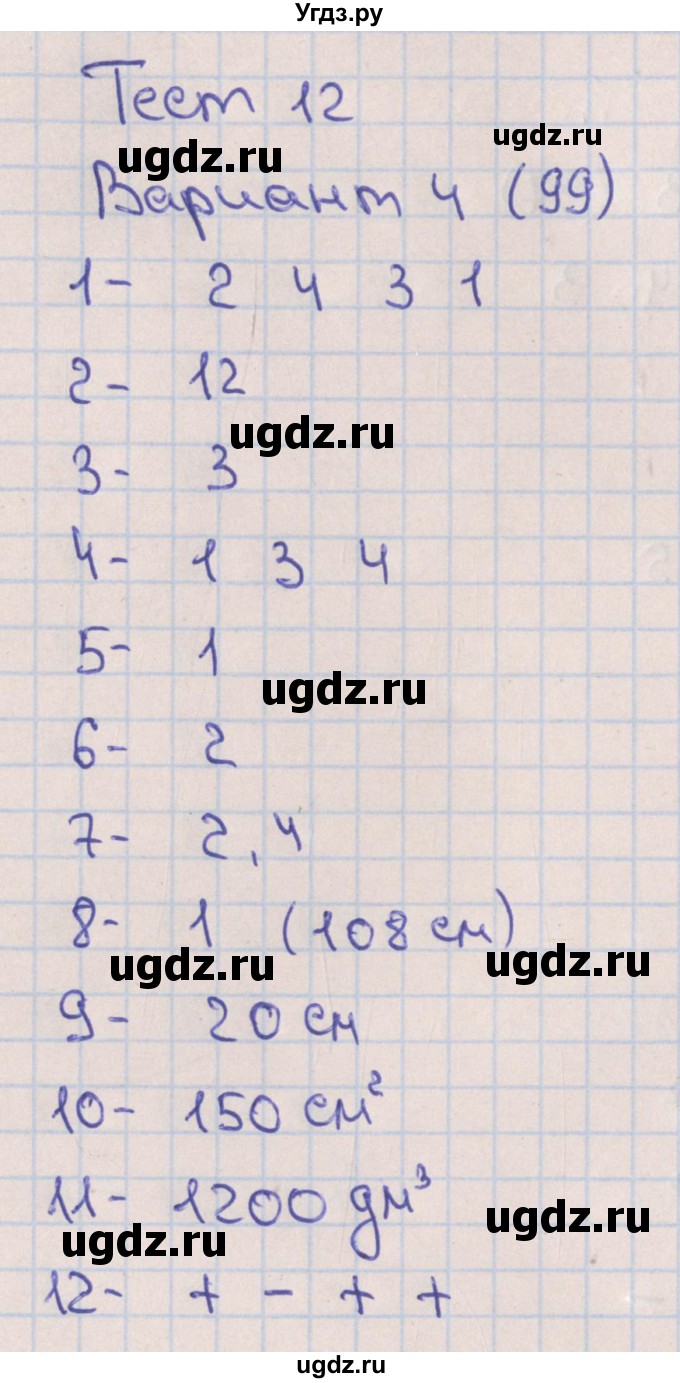 Угдз.ру
Тест 12
ugdz.ru
ugdz.ru
Вариант 4 (99)
1- 2 4 3 1
2- 12
ugdz.ru
3- 3
4- 1 3 4
5- 1
ugdz.ru
6- 2
7- 2,4
8- 1 (108 см)
ugdz.ru
ugdz.ru
9- 20 см
10- 150 см²
11- 1200 дм³
ugdz.ru
ugdz.ru
12- + - + +
ugdz.ru